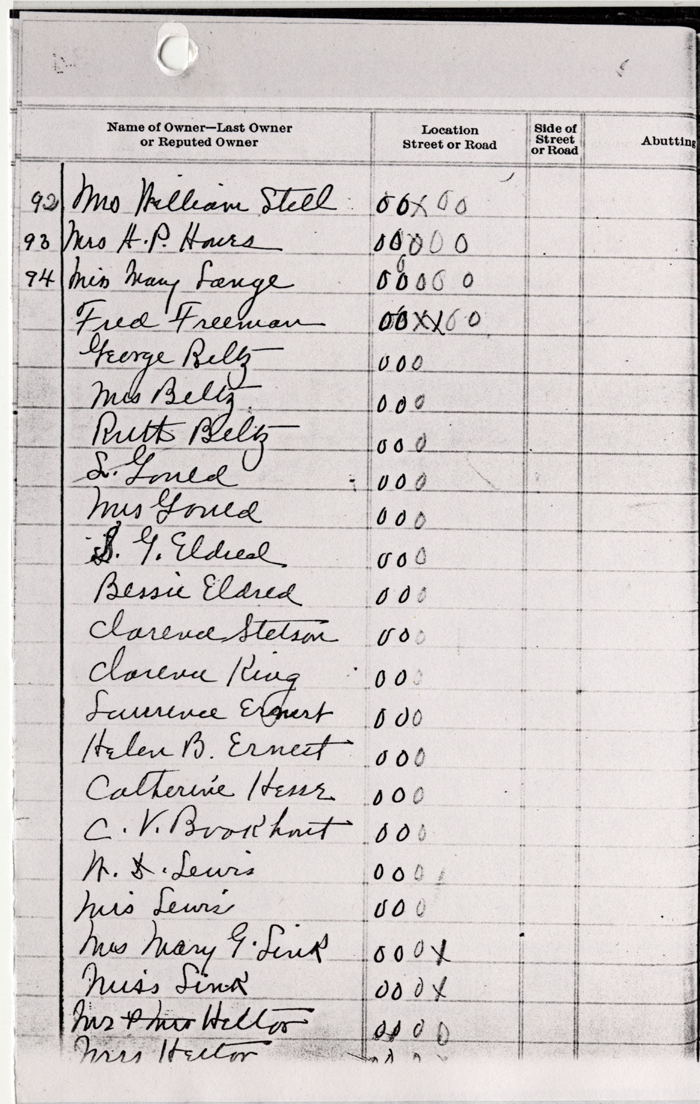 Name of Owner—Last Owner or Reputed Owner Location Street or Road Side of Street or Road Abutting
92 Mrs William Stell 00X00
93 Mrs H.P. Howes 00000
94 Miss Mary Lange 00000
Fred Freeman 00XX00
George Beltz 000
Mrs Beltz 000
Ruth Beltz 000
L. Gould 000
Mrs Gould 000
S. G. Eldred 000
Bessie Eldred 000
Clarence Stetson 000
Clarence King 000
Laurence Ernest 000
Helen B. Ernest 000
Catherine Hesse 000
C. V. Bookhout 000
Lewis 000
Mrs Lewis 000
Mrs Mary G. Link 000X
Miss Link 000X
Mr & Mrs Heltor 0000
Heltor